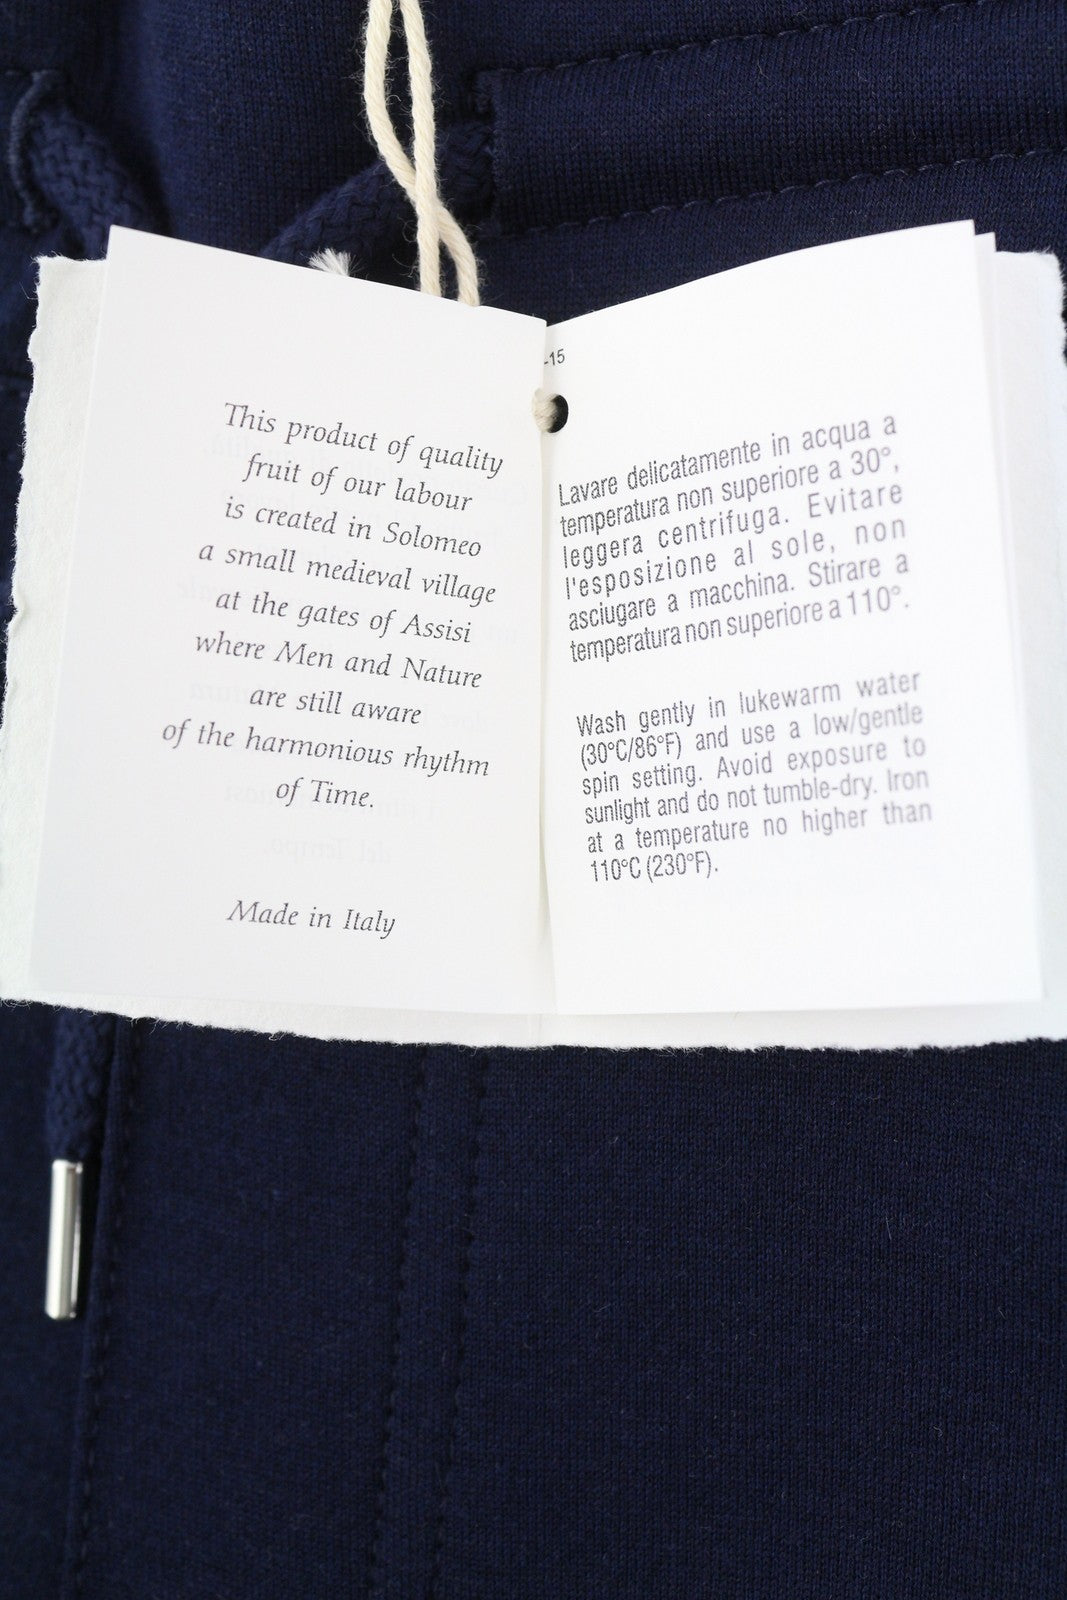 This product of quality
fruit of our labour
is created in Solomeo
a small medieval village
at the gates of Assisi
where Men and Nature
are still aware
of the harmonious rhythm
of Time.
Made in Italy
-15
Lavare delicatamente in acqua a
temperatura non superiore a 30°,
leggera centrifuga. Evitare
l'esposizione al sole, non
asciugare a macchina. Stirare a
temperatura non superiore a 110°.
Wash gently in lukewarm water
(30°C/86°F) and use a low/gentle
spin setting. Avoid exposure to
sunlight and do not tumble-dry. Iron
at a temperature no higher than
110°C (230°F).